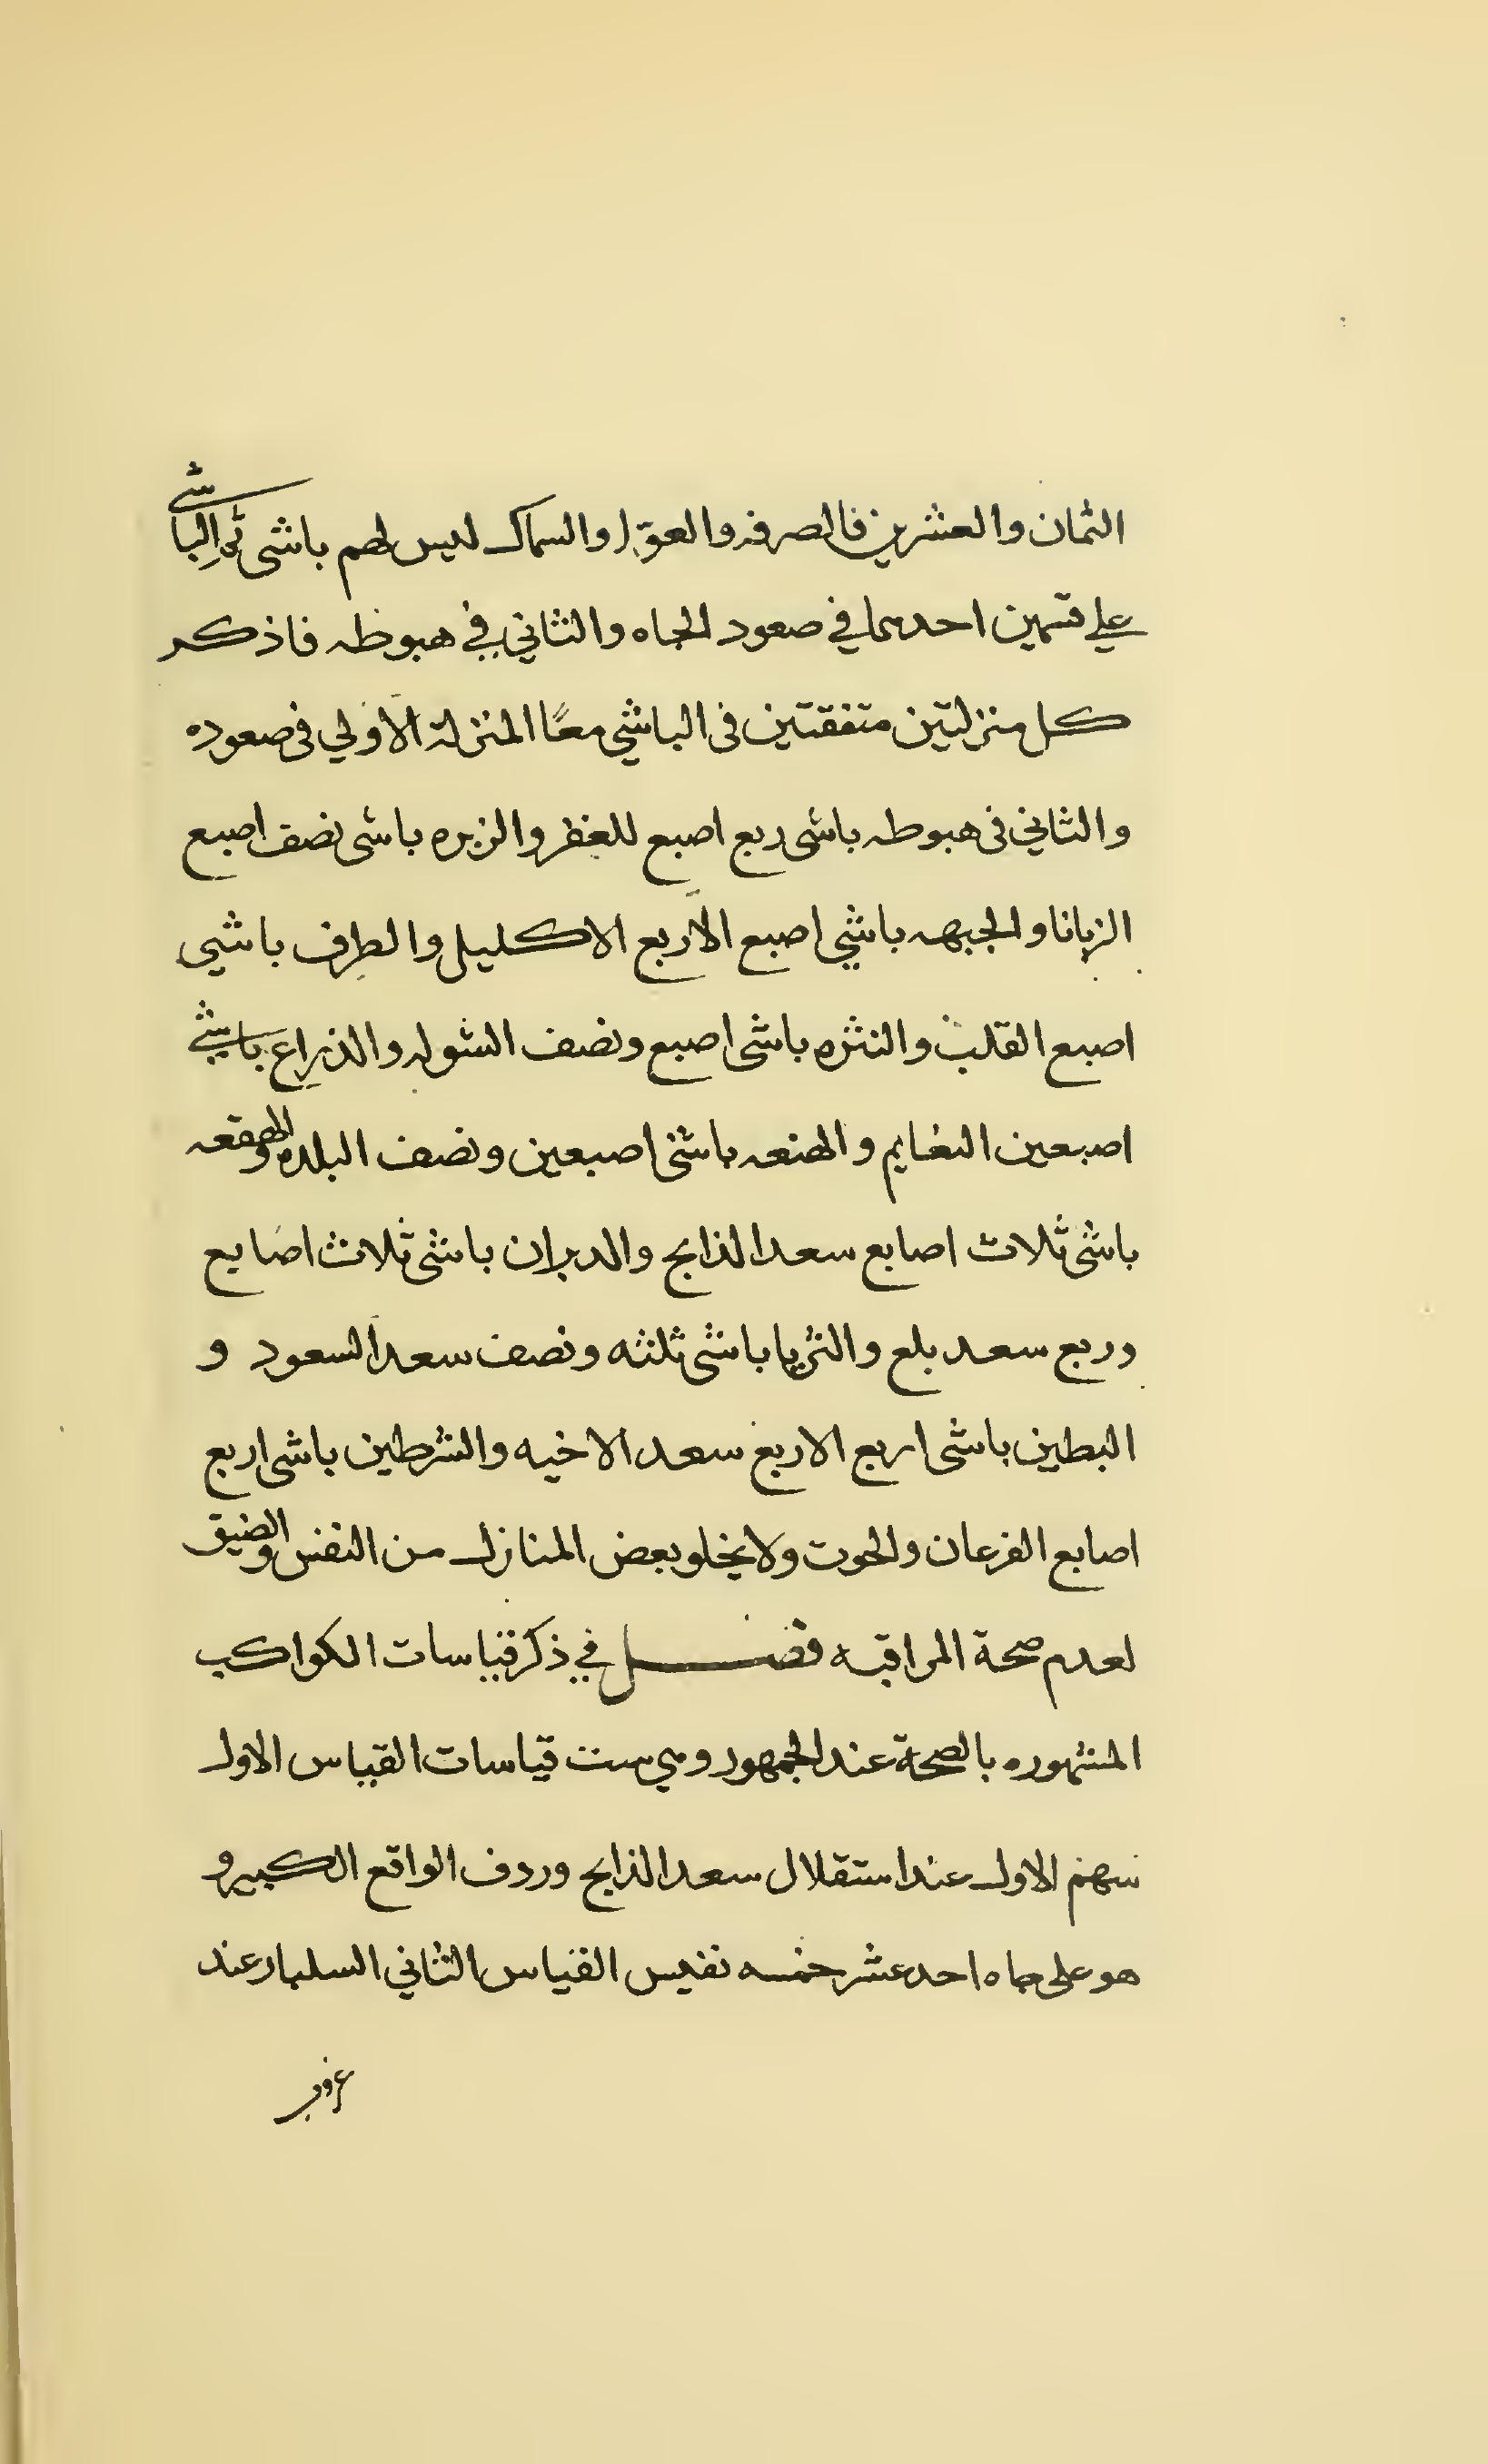 الثمان والعشرين فالصرفه والعوّا والسماك ليس لهم باشى ثم الباشي
علي قسمين احدهما في صعود الجاه والثاني في هبوطه فاذكر
كل منزلتين متفقتين فى الباشي معًا المنزلة الاولي فى صعوده
والثاني فى هبوطه باشى ربع اصبع للغفر والزبره باشى نصف اصبع
الزبانا والجبهه باشي اصبع الاربع الاكليل والطرف باشي
اصبع القلب والنثره باشى اصبع ونصف الشوله والذراع باشي
اصبعين النعايم والهنعه باشى اصبعين ونصف البلده والهقعه
باشى ثلاث اصابع سعد الذابح والدبران باشى ثلاث اصابع
وربع سعد بلع والثريا باشى ثلثه ونصف سعد السعود و
البطين باشى اربع الاربع سعد الاخيه والشرطين باشى اربع
اصابع الفرعان والحوت ولا يخلو بعض المنازل من النفس والضيق
لعدم صحة المراقبه فصل في ذكر قياسات الكواكب
المشهوره بالصحة عند الجمهور وهي ست قياسات القياس الاول
سهم الاول عند استقلال سعد الذابح وردف الواقع الكبير و
هو على جاه احد عشر خمسه نفيس القياس الثاني السلبار عند
غروب